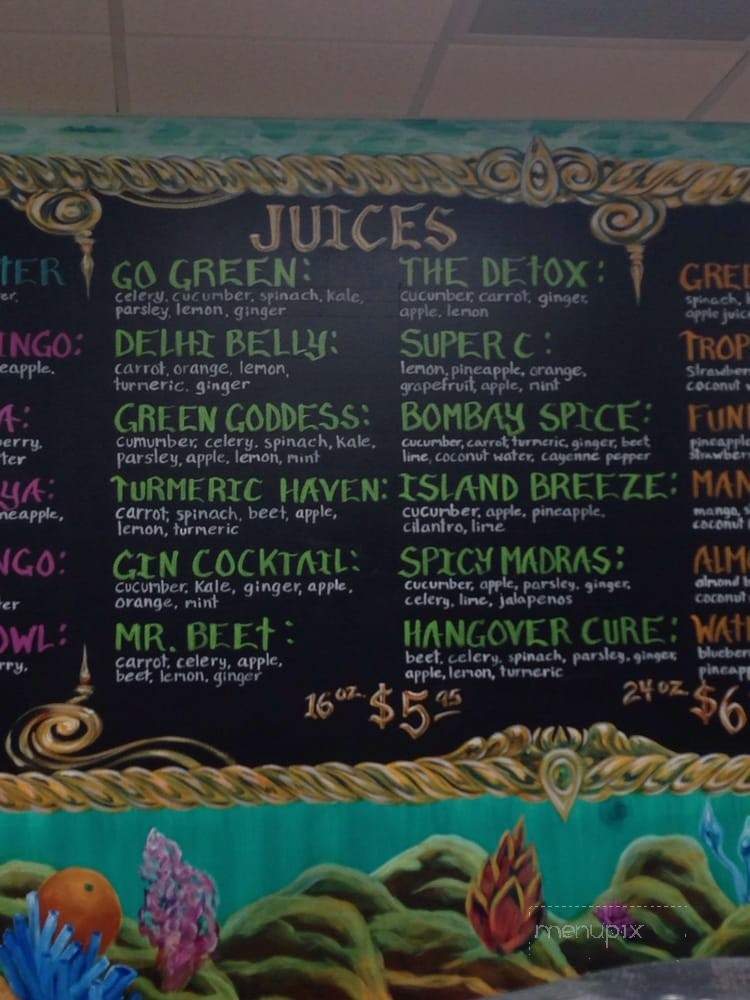 JUICES
TER
er.
INGO:
eapple.
A:
erry,
ter
YA:
neapple,
NGO:
ter
OWL:
rry,
GO GREEN:
celery, cucumber, spinach, kale,
parsley, lemon, ginger
DELHI BELLY:
carrot, orange, lemon,
turmeric, ginger
GREEN GODDESS:
cumumber, celery, spinach, kale,
parsley, apple, lemon, mint
TURMERIC HAVEN:
carrot, spinach, beet, apple,
lemon, turmeric
GIN COCKTAIL:
cucumber, kale, ginger, apple,
orange, mint
MR. BEET:
carrot, celery, apple,
beet, lemon, ginger
THE DETOX:
cucumber, carrot, ginger,
apple, lemon
SUPER C:
lemon, pineapple, orange,
grapefruit, apple, mint
BOMBAY SPICE:
cucumber, carrot, turmeric, ginger, beet
lime, coconut water, cayenne pepper
ISLAND BREEZE:
cucumber, apple, pineapple,
cilantro, lime
SPICY MADRAS:
cucumber, apple, parsley, ginger,
celery, lime, jalapenos
HANGOVER CURE:
beet, celery, spinach, parsley, ginger,
apple, lemon, turmeric
16 oz $5.95
24 oz $6
GREE
spinach, k
apple juic
TROP
Strawber
coconut w
FUN
pineapple
strawber
MAN
mango, s
coconut
ALMO
almond b
coconut
WAT
blueber
pineap
menupix